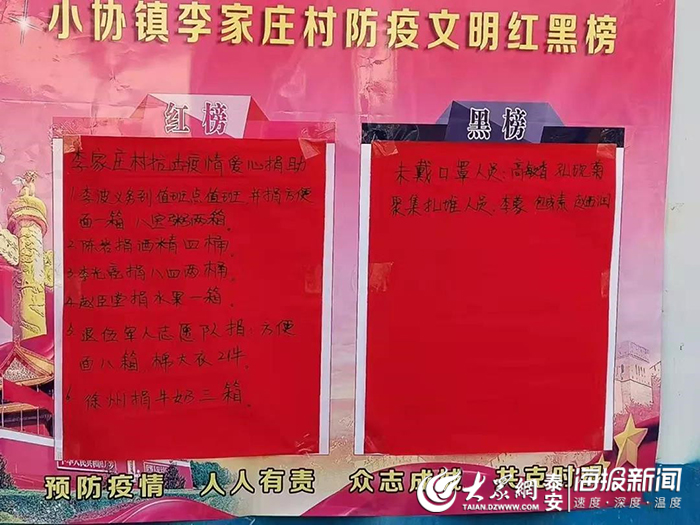 小协镇李家庄村防疫文明红黑榜
红榜
李家庄村抗击疫情爱心捐助
1.李波义务到值班点值班,并捐方便
面一箱 八宝粥两箱.
2.陈岩捐酒精四桶
3.李元 捐八四两桶.
4. 捐水果一箱.
5.退伍军人志愿队捐:方便
面八箱,棉大衣2件.
6.徐州捐牛奶三箱.
黑榜
未戴口罩人员:高敏香
聚集扎堆人员:李
预防疫情 人人有责 众志成城 共克时艰
大众网 泰安
TAIAN.DZWWW.COM
海报新闻
速度·深度·温度